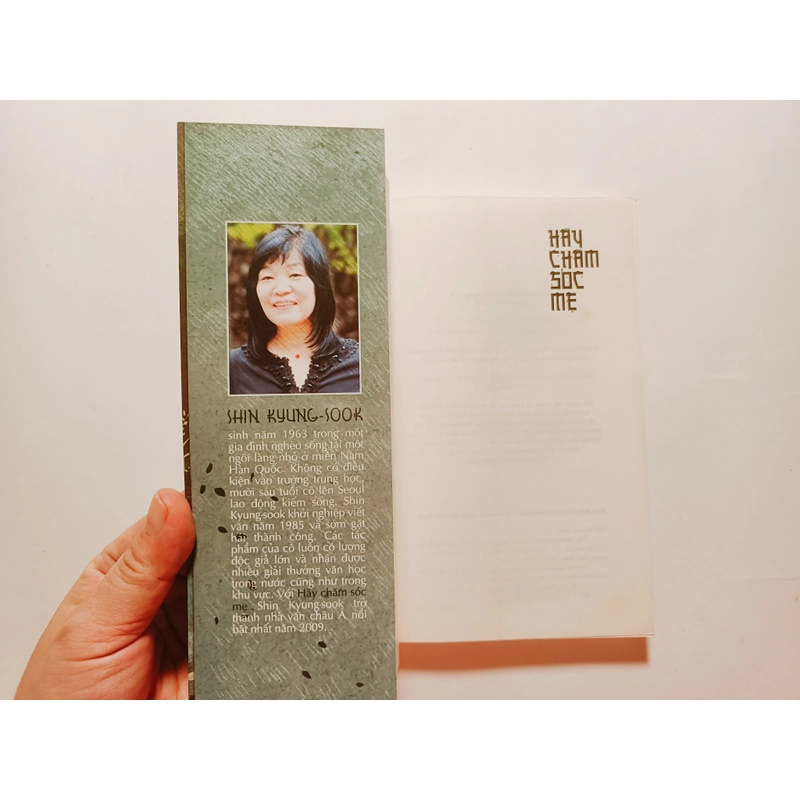 SHIN KYUNG-SOOK
sinh năm 1963 trong một
gia đình nghèo sống tại một
ngôi làng nhỏ ở miền Nam
Hàn Quốc. Không có điều
kiện vào trường trung học,
mười sáu tuổi cô lên Seoul
lao động kiếm sống. Shin
Kyung-sook khởi nghiệp viết
văn năm 1985 và sớm gặt
hái thành công. Các tác
phẩm của cô luôn có lượng
độc giả lớn và nhận được
nhiều giải thưởng văn học
trong nước cũng như trong
khu vực. Với Hãy chăm sóc
mẹ, Shin Kyung-sook trở
thành nhà văn châu Á nổi
bật nhất năm 2009.
HÃY
CHĂM
SÓC
MẸ